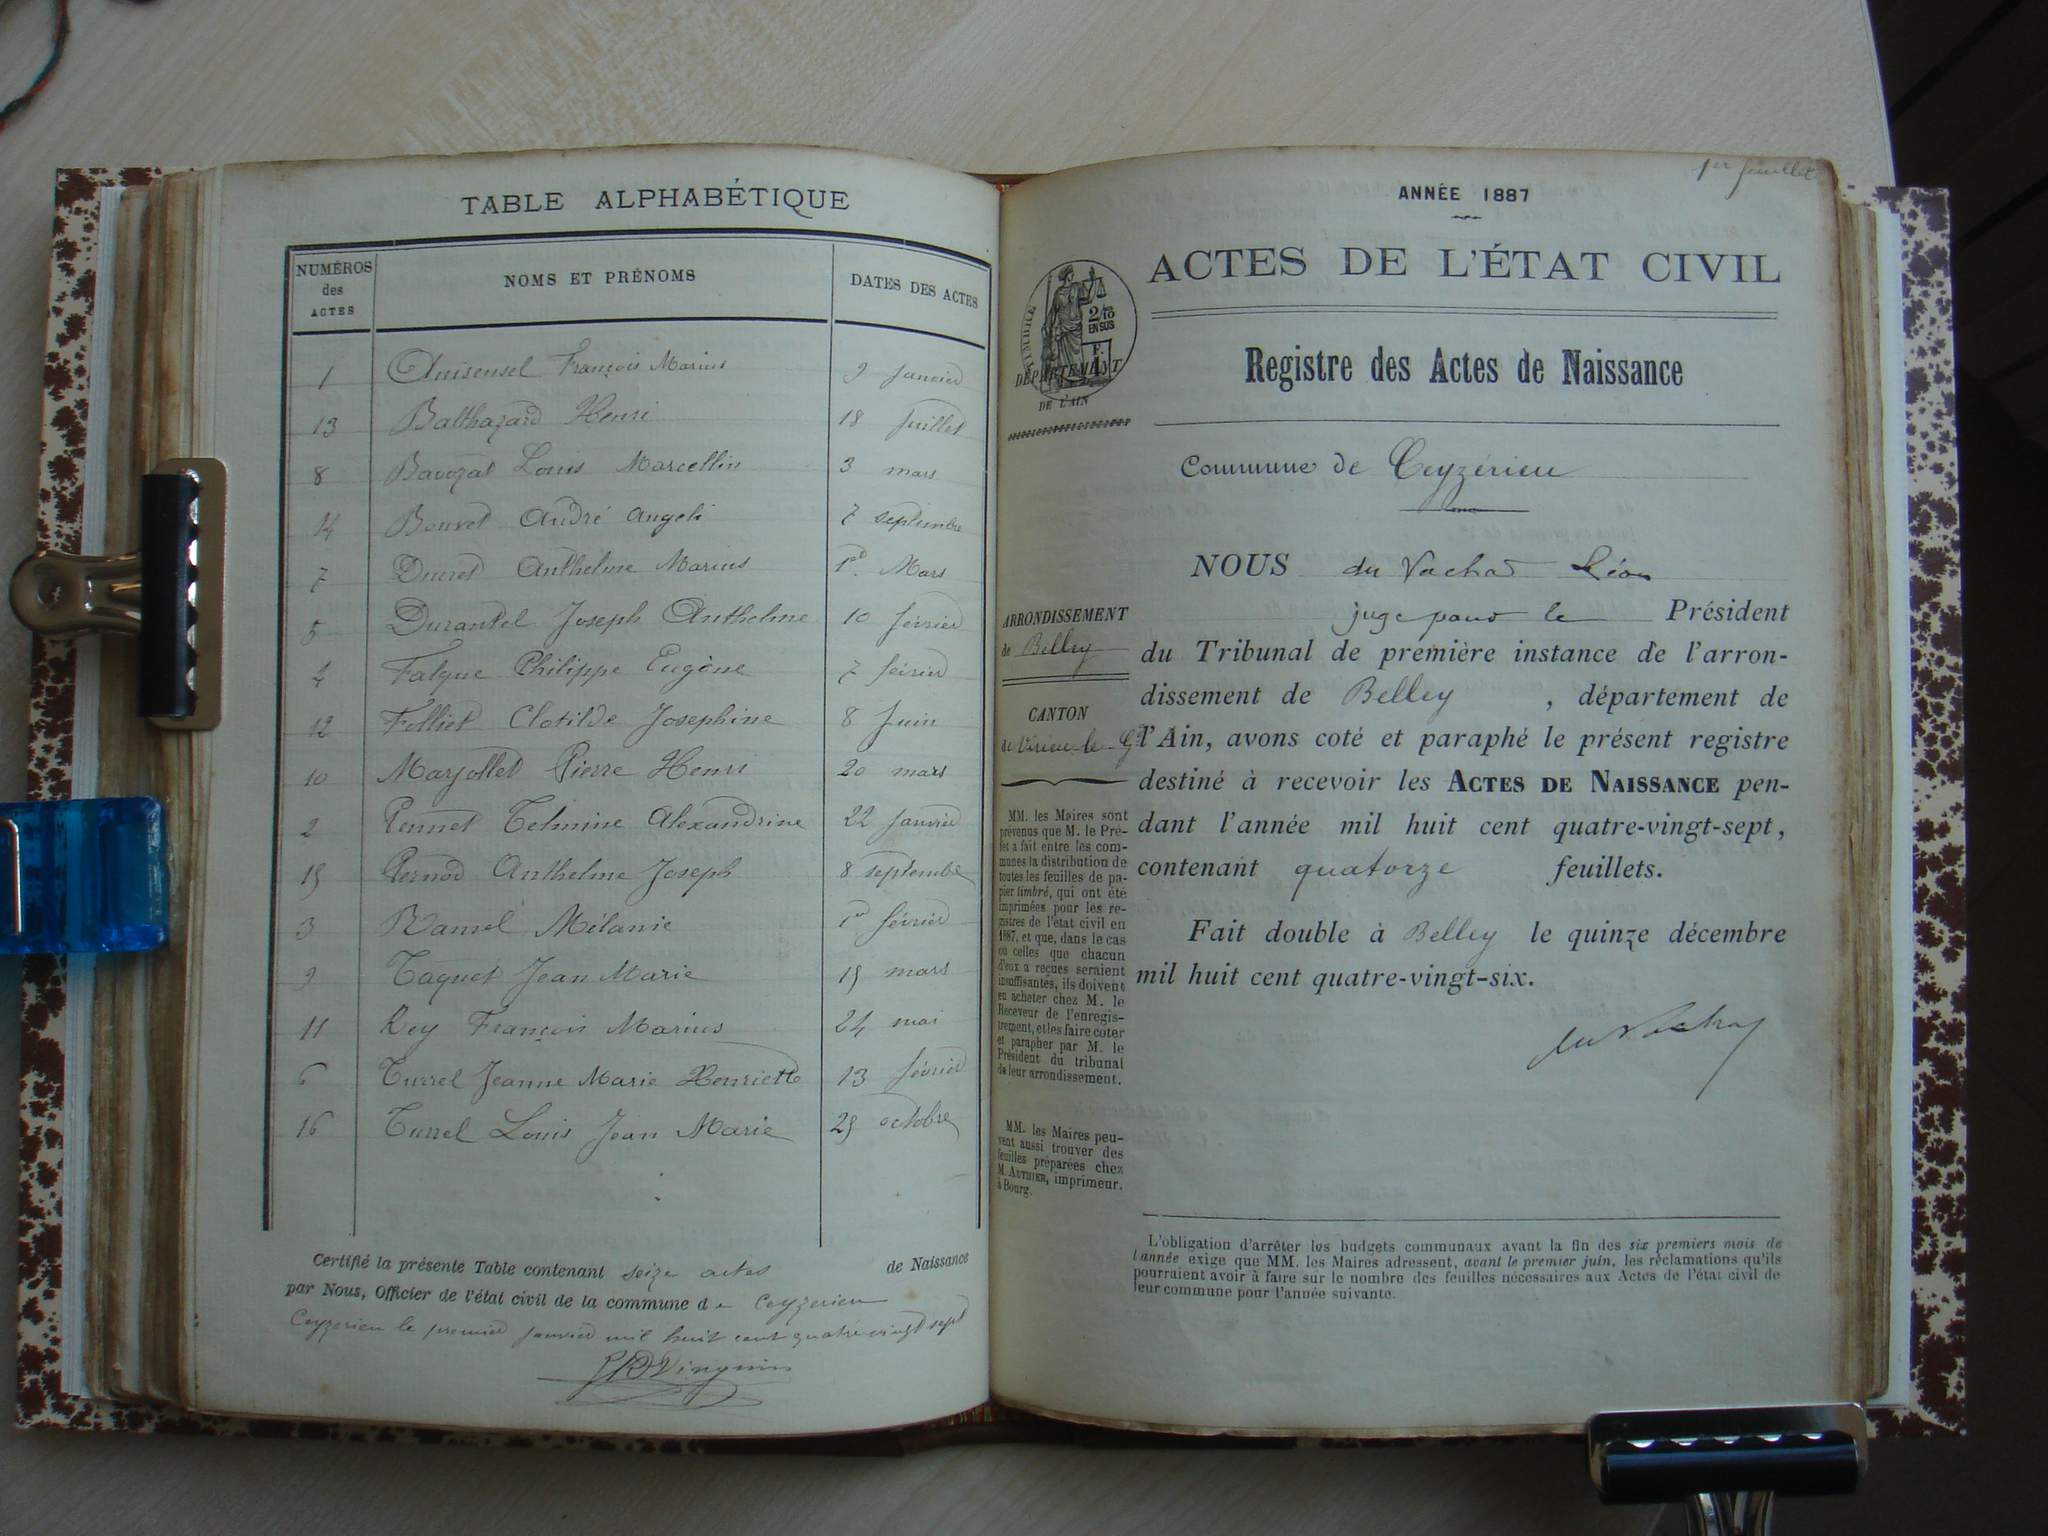 TABLE ALPHABÉTIQUE
NUMÉROS des ACTES NOMS ET PRÉNOMS DATES DES ACTES
1 François Marius 9 Janvier
13 Balthazard Henri 18 Juillet
8 Bavozat Louis Marcellin 3 mars
14 Bouvet André 7 septembre
7 Ducret Anthelme Marius 1er Mars
5 Durantel Joseph Anthelme 10 février
4 Falque Philippe Eugène 7 février
12 Folliet Clotilde Josephine 8 Juin
10 Marjollet Pierre Henri 20 mars
2 Pennet Alexandrine 22 Janvier
15 Pernod Anthelme Joseph 8 septembre
3 Mélanie 1er février
9 Taquet Jean Marie 15 mars
11 Rey François Marius 24 mai
6 Turrel Jeanne Marie Henriette 13 février
16 Turrel Louis Jean Marie 25 octobre
Certifié la présente Table contenant seize actes de Naissance
par Nous, Officier de l'état civil de la commune de Ceyzerieu
Ceyzerieu le premier janvier mil huit cent quatre vingt sept
1er feuillet
ANNÉE 1887
ACTES DE L'ÉTAT CIVIL
TIMBRE
2/10
EN SUS
F.
1
DÉPARTEMENT
DE L'AIN
Registre des Actes de Naissance
Commune de Ceyzérieu
NOUS du Vachat Léon
juge pour le Président
du Tribunal de première instance de l'arron-
dissement de Belley , département de
l'Ain, avons coté et paraphé le présent registre
destiné à recevoir les ACTES DE NAISSANCE pen-
dant l'année mil huit cent quatre-vingt-sept,
contenant quatorze feuillets.
Fait double à Belley le quinze décembre
mil huit cent quatre-vingt-six.
du Vachat
ARRONDISSEMENT
de Belley
CANTON
de Virieu-le-Gd
MM. les Maires sont
prévenus que M. le Pré-
fet a fait entre les com-
munes la distribution de
toutes les feuilles de pa-
pier timbré, qui ont été
imprimées pour les re-
gistres de l'état civil en
1887, et que, dans le cas
où celles que chacun
d'eux a reçues seraient
insuffisantes, ils doivent
en acheter chez M. le
Receveur de l'enregis-
trement, et les faire coter
et parapher par M. le
Président du tribunal
de leur arrondissement.
MM. les Maires peu-
vent aussi trouver des
feuilles préparées chez
M. AUTHIER, imprimeur,
à Bourg.
L'obligation d'arrêter les budgets communaux avant la fin des six premiers mois de
l'année exige que MM. les Maires adressent, avant le premier juin, les réclamations qu'ils
pourraient avoir à faire sur le nombre des feuilles nécessaires aux Actes de l'état civil de
leur commune pour l'année suivante.